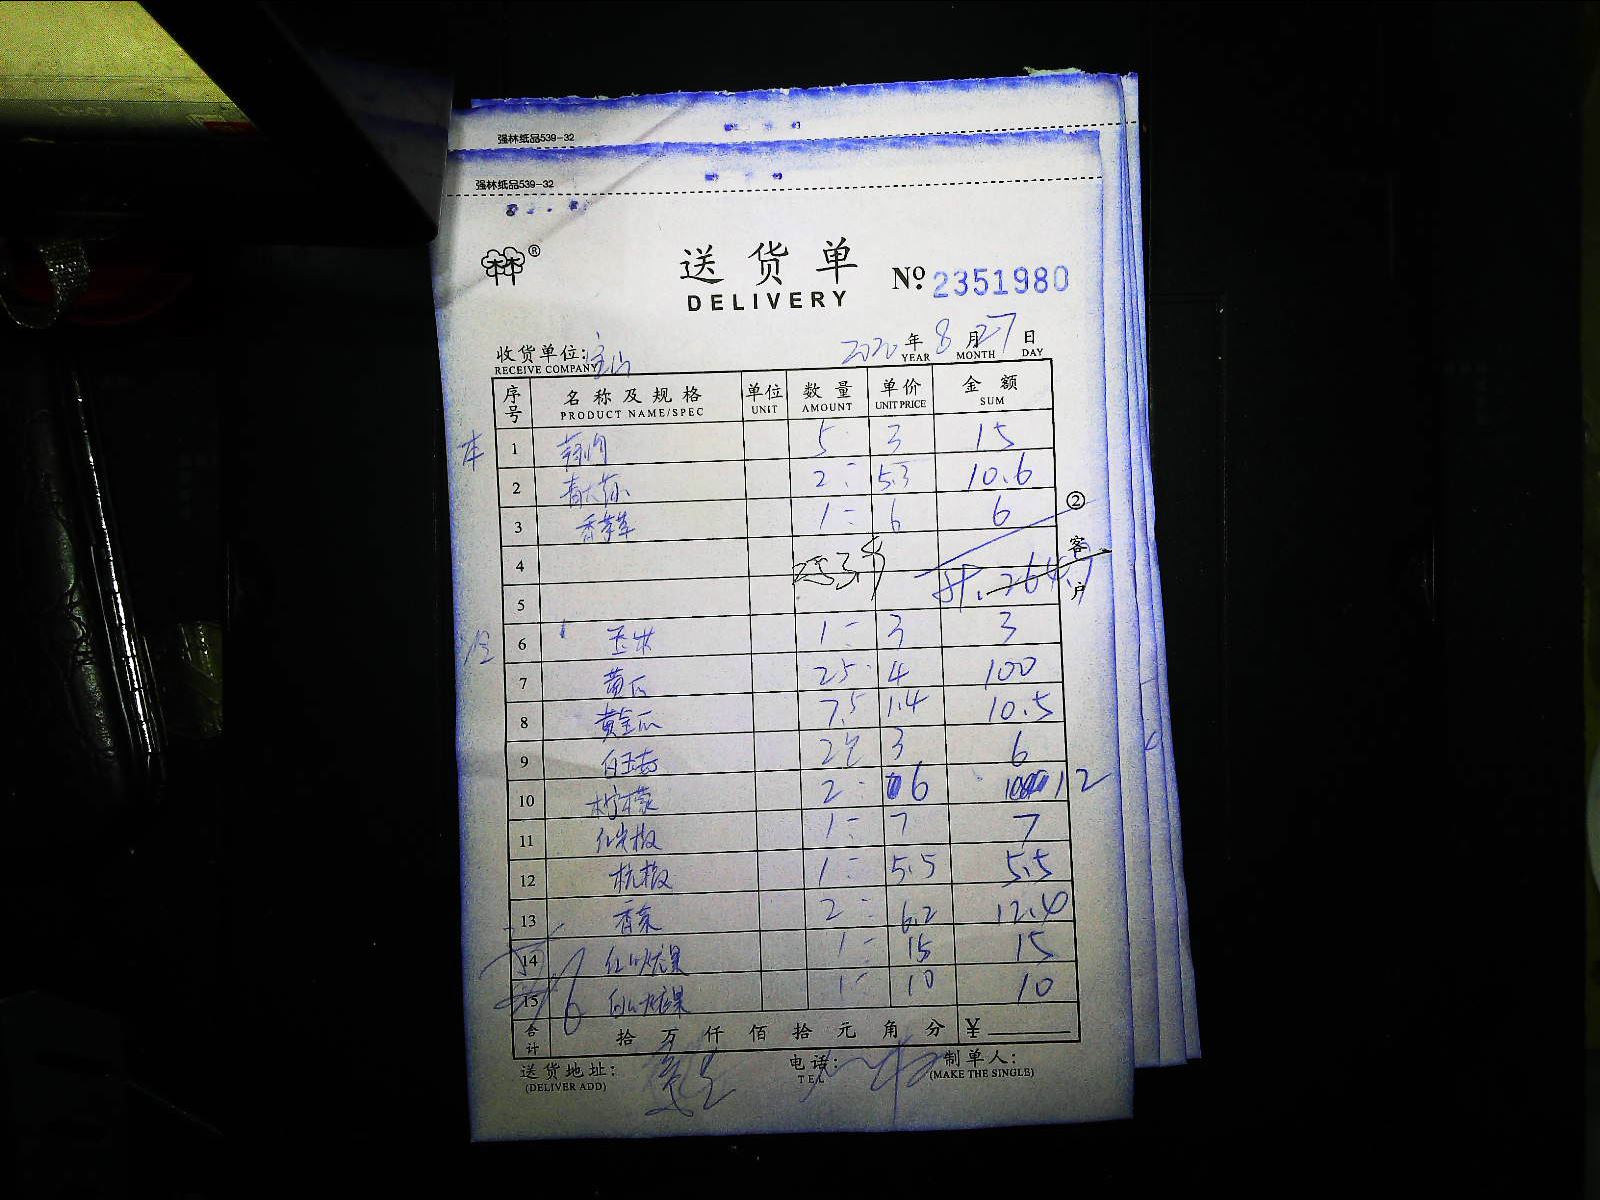 强林纸品539-32
强林纸品539-32
林林 ®
送货单
DELIVERY
Nº 2351980
收货单位:宝山 2020年8月27日
RECEIVE COMPANY YEAR MONTH DAY
序号 名称及规格 单位 数量 单价 金额
PRODUCT NAME/SPEC UNIT AMOUNT UNIT PRICE SUM
本 1 5 3 15
2 2 5.3 10.6
3 香芹 1 6 6
②客户
4 253.5
5
冷 6 玉米 1 3 3
7 黄瓜 25 4 100
8 黄金瓜 7.5 1.4 10.5
9 白玉菇 2 3 6
10 柠檬 2 6 12
11 红尖椒 1 7 7
12 杭椒 1 5.5 5.5
13 香菜 2 6.2 12.4
14 红火龙果 1 15 15
15 白火龙果 1 10 10
合计 拾万仟佰拾元角分 ¥
送货地址: 电话: 制单人:
(DELIVER ADD) TEL (MAKE THE SINGLE)